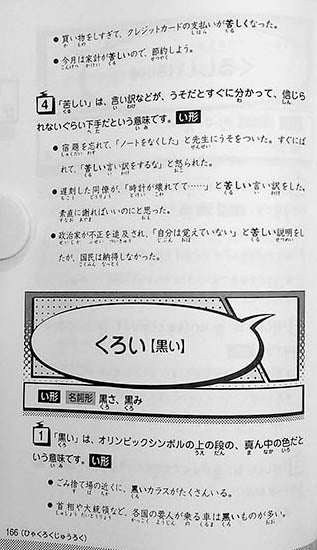 ● 買い物をしすぎて、クレジットカードの支払いが苦しくなった。
● 今月は家計が苦しいので、節約しよう。
4 「苦しい」は、言い訳などが、うそだとすぐに分かって、信じら
れないぐらい下手だという意味です。い形
● 宿題を忘れて、「ノートをなくした」と先生にうそをついた。すぐにば
れて、「苦しい言い訳をするな」と怒られた。
● 遅刻した同僚が、「時計が壊れてて……」と苦しい言い訳をした。
素直に謝ればいいのにと思った。
● 政治家が不正を追及され、「自分は覚えていない」と苦しい説明をし
たが、国民は納得しなかった。
くろい【黒い】
い形 名詞形 黒さ、黒み
1 「黒い」は、オリンピックシンボルの上の段の、真ん中の色だと
いう意味です。い形
● ごみ捨て場の近くに、黒いカラスがたくさんいる。
● 首相や大統領など、各国の要人が乗る車は黒いものが多い。
166（ひゃくろくじゅうろく）